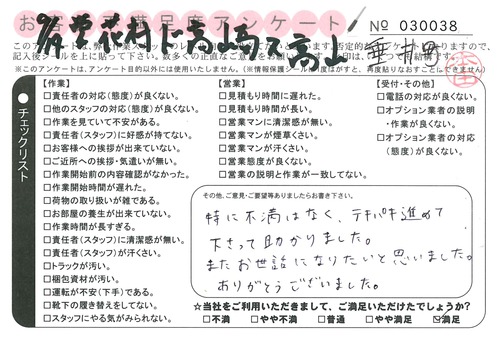 お客様満足度アンケート
No 030038
【作業】
□責任者の対応(態度)が良くない。
□他のスタッフの対応(態度)が良くない。
□作業を見ていて不安がある。
□責任者(スタッフ)に好感が持てない。
□お客様への挨拶が出来ていない。
□ご近所への挨拶・気遣いが無い。
□作業開始前の内容確認がなかった。
□作業開始時間が遅れた。
□荷物の取り扱いが雑である。
□お部屋の養生が出来ていない。
□作業時間が長すぎる。
□責任者(スタッフ)に清潔感が無い。
□責任者(スタッフ)が汗くさい。
□トラックが汚い。
□梱包資材が汚い。
□運転が不安(下手)である。
□靴下の履き替えをしてない。
□スタッフにやる気がみられない。
【営業】
□見積もり時間に遅れた。
□見積もり時間が長い。
□営業マンに清潔感が無い。
□営業マンが煙草くさい。
□営業マンが汗くさい。
□営業態度が良くない。
□営業の説明と作業が一致してない。
【受付・その他】
□電話の対応が良くない。
□オプション業者の説明
・作業が良くない。
□オプション業者の対応
(態度)が良くない。
●チェックリスト
その他、ご意見・ご要望等ありましたらお書き下さい。
特に不満はなく、テキパキ進めて
下さって助かりました。
またお世話になりたいと思いました。
ありがとうございました。
☆当社をご利用いただきまして、ご満足いただけたでしょうか?
□不満 □やや不満 □普通 □やや満足 ☑満足